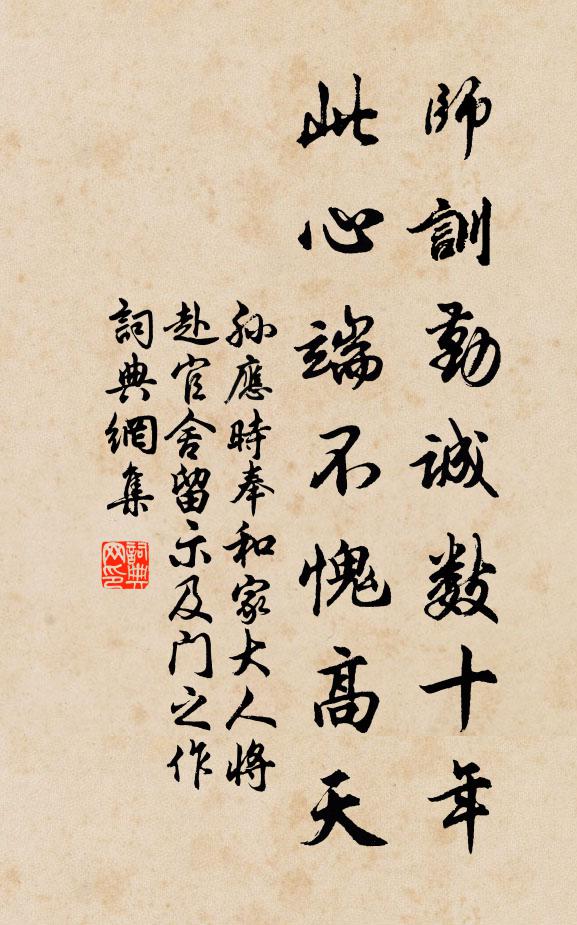 師訓勤誠數十年
此心端不愧高天
孫應時奉和家大人將
赴官舍留示及门之作
詞典網集
詞典网印